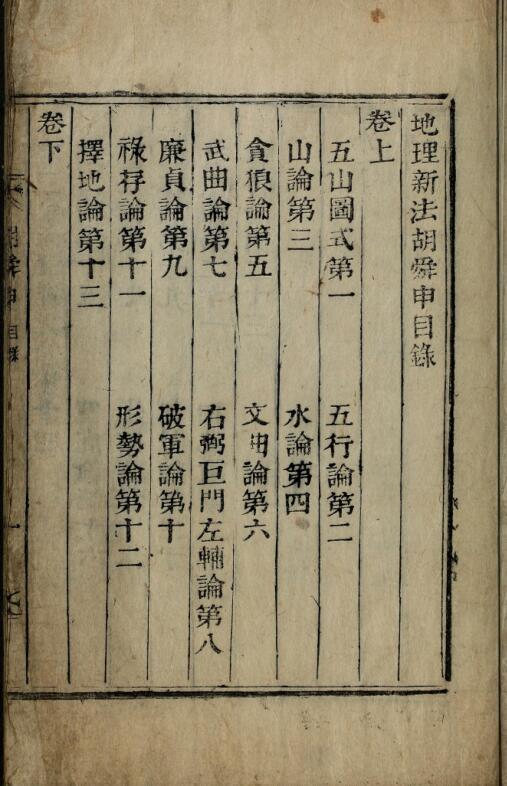 地理新法胡舜申目錄
卷上
五山圖式第一　五行論第二
山論第三　水論第四
貪狼論第五　文曲論第六
武曲論第七　右弼巨門左輔論第八
廉貞論第九　破軍論第十
祿存論第十一　形勢論第十二
擇地論第十三
卷下
胡舜申目錄